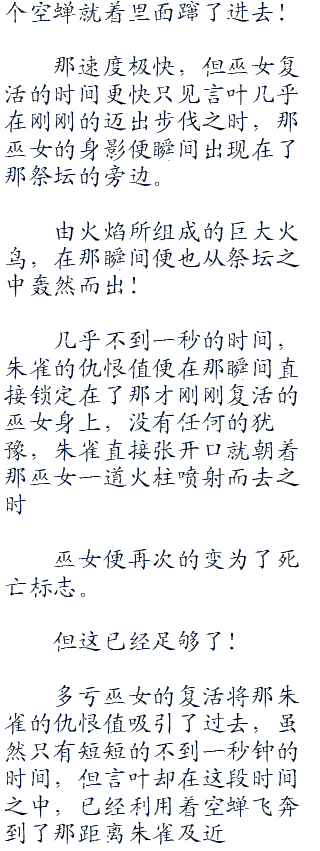 个空蝉就着里面蹿了进去！
那速度极快，但巫女复
活的时间更快只见言叶几乎
在刚刚的迈出步伐之时，那
巫女的身影便瞬间出现在了
那祭坛的旁边。
由火焰所组成的巨大火
鸟，在那瞬间便也从祭坛之
中轰然而出！
几乎不到一秒的时间，
朱雀的仇恨值便在那瞬间直
接锁定在了那才刚刚复活的
巫女身上，没有任何的犹
豫，朱雀直接张开口就朝着
那巫女一道火柱喷射而去之
时
巫女便再次的变为了死
亡标志。
但这已经足够了！
多亏巫女的复活将那朱
雀的仇恨值吸引了过去，虽
然只有短短的不到一秒钟的
时间，但言叶却在这段时间
之中，已经利用着空蝉飞奔
到了那距离朱雀及近